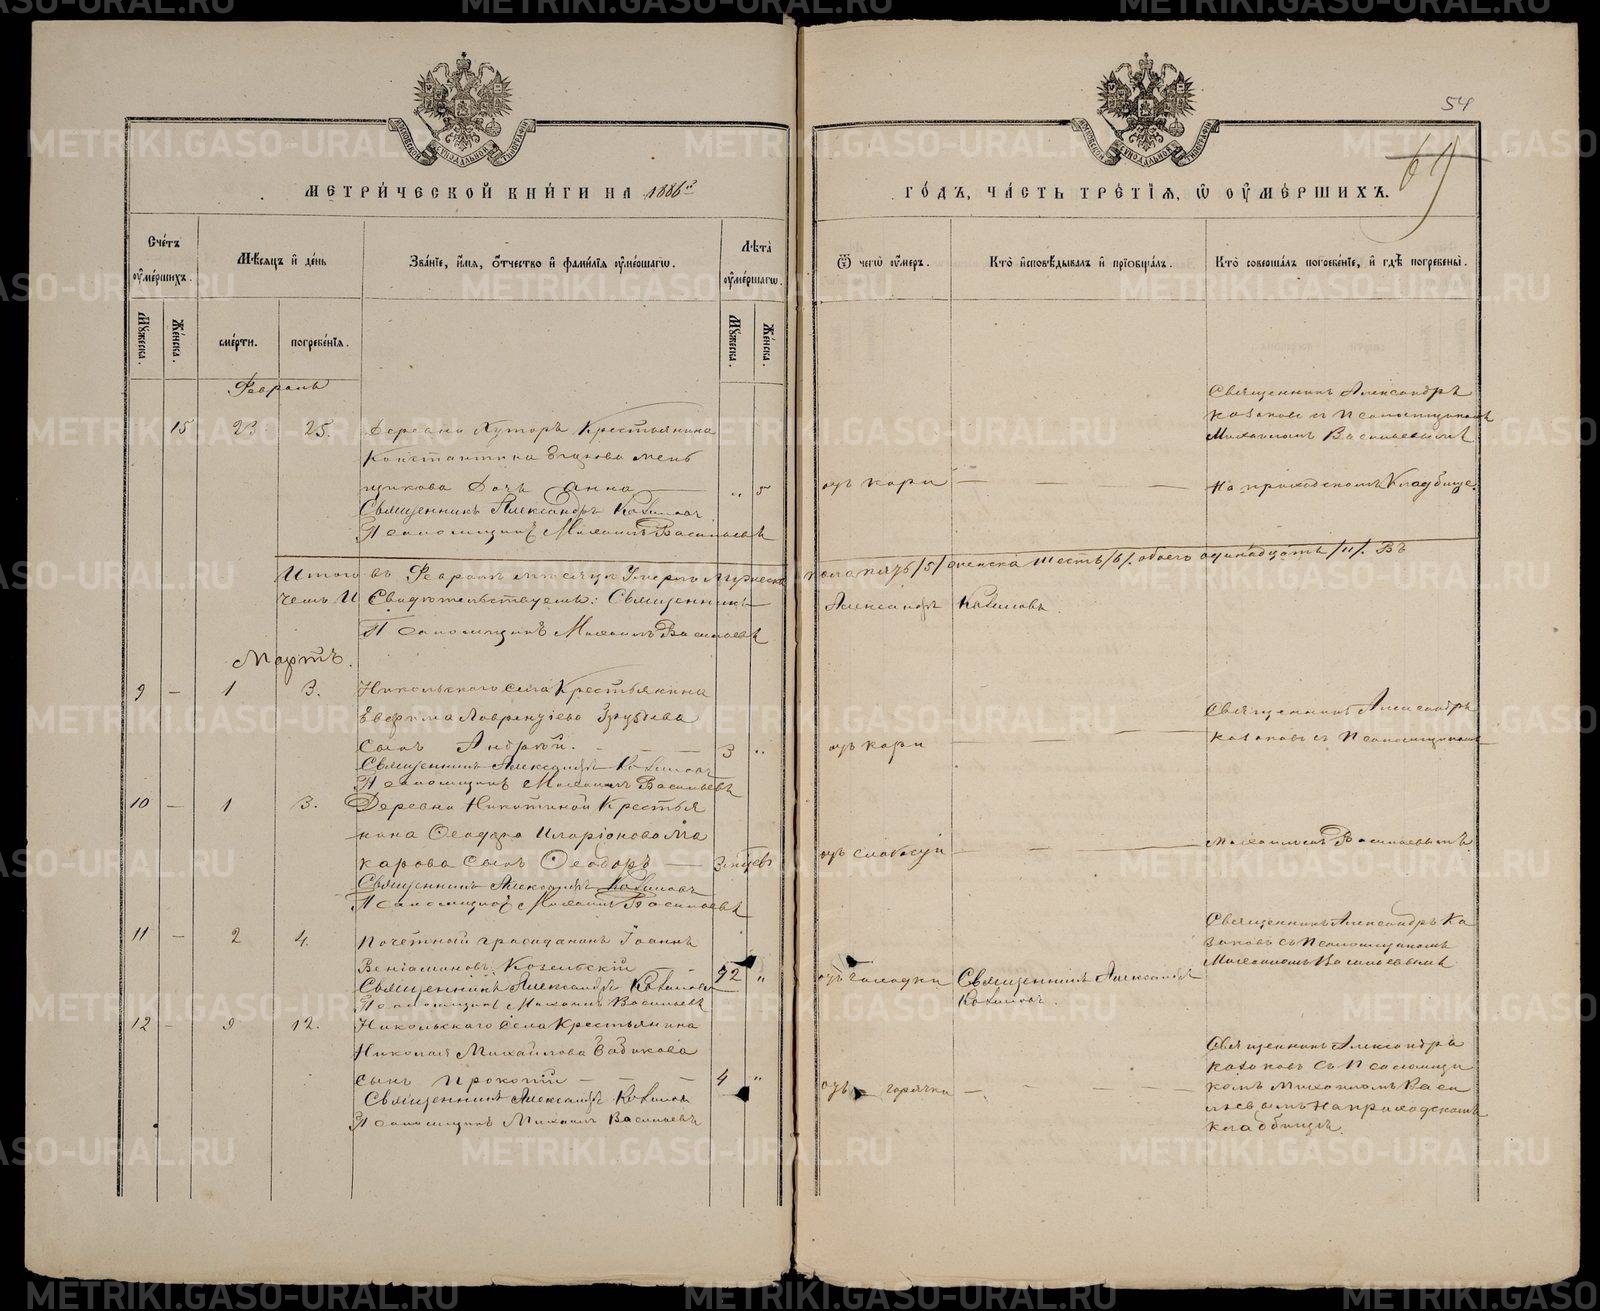 54
69
МОСКОВСКОЙ СѴНОДАЛЬНОЙ ТИПОГРАФІИ
МОСКОВСКОЙ СѴНОДАЛЬНОЙ ТИПОГРАФІИ
МЕТРИ́ЧЕСКОЙ КНИ́ГИ НА 1886й
ГО́ДЪ, ЧА́СТЬ ТРЕ́ТІѦ, Ѡ ОУМЕ́РШИХЪ.
Сче́тъ оумершихъ.
Мѣ́сяцъ и де́нь
Зва́ніе, и́мѧ, ѻтчество и фами́лїѧ оуме́ршагѡ.
Лѣ́та оуме́ршагѡ.
Ѿ чегѡ̀ оу́меръ.
Кто̀ исповѣ́дывалъ и прїобща́лъ.
Кто̀ соверша́лъ погребе́нїе, и гдѣ̀ погребены̀.
Му́жеска.
Же́нска.
сме́рти.
погребе́нїѧ.
Му́жеска.
Же́нска.
Февраль
15 23 25. Деревни Хуторъ Крестьянина
Константина
щикова Дочь Анна — „ 5
Священникъ Александръ Казаковъ
Псаломщикъ Михаилъ Васильевъ
отъ кори — — —
Священникъ Александръ
Казаковъ съ Псаломщикомъ
Михаиломъ Васильевымъ
На приходскомъ Кладбище.
Итого въ Февралѣ мѣсяцѣ Умерло Мужеска
пола пять /5/ женска шесть /6/. обоего одинадцать /11/. Въ
чемъ И Свидѣтельствуемъ: Священникъ
Александръ Казаковъ.
Псаломщикъ Михаилъ Васильевъ
Мартъ.
9 — 1 3. Никольскаго села Крестьянина
Евфима Лаврентіева
сынъ Андрей. — — — 3 „
Священникъ Александръ Казаковъ
Псаломщикъ Михаилъ Васильевъ
отъ кори — — —
Священникъ Александръ
Казаковъ съ Псаломщикомъ
10 — 1 3. Деревни Никитиной Крестья
нина Ѳеодора Иларіонова Ма
карова Сынъ Ѳеодоръ —
Священникъ Александръ Казаковъ
Псаломщикъ Михаилъ Васильевъ
отъ слабости — — —
Михаиломъ Васильевымъ
11 — 2 4. Почетный гражданинъ Іоаннъ
Веніаминовъ Козельскій — 72 „
Священникъ Александръ Казаковъ
Псаломщикъ Михаилъ Васильевъ
отъ
Священникъ Александръ
Казаковъ.
Священникъ Александръ Ка
заковъ съ Псаломщикомъ
Михаиломъ Васильевымъ
12 — 9 12. Никольскаго села Крестьянина
Николая Михайлова
сынъ Прокопій — — — 4 „
Священникъ Александръ Казаковъ
Псаломщикъ Михаилъ Васильевъ
отъ горячки — — —
Священникъ Александръ
Казаковъ съ Псаломщи
комъ Михаиломъ Васи
льевымъ На приходскомъ
кладбищѣ.
METRIKI.GASO-URAL.RU